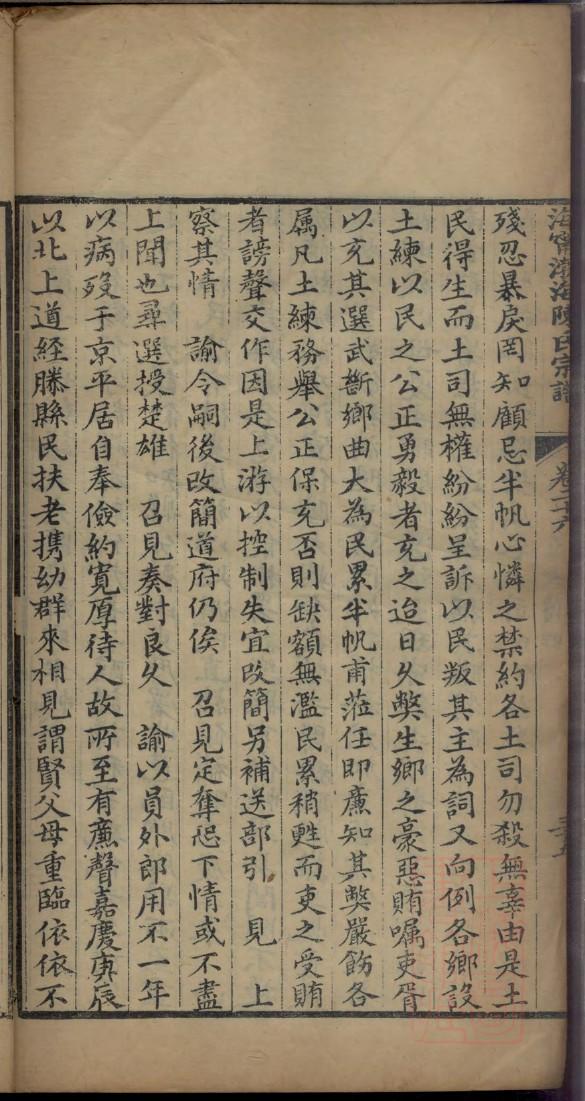 海寧渤海陳氏宗譜 卷二十六
殘忍暴戾罔知顧忌半帆心憐之禁約各土司勿殺無辜由是土
民得生而土司無權紛紛呈訴以民叛其主為詞又向例各鄉設
土練以民之公正勇毅者充之迨日久獘生鄉之豪惡賄囑吏胥
以充其選武斷鄉曲大為民累半帆甫蒞任即廉知其獘嚴飭各
属凡土練務舉公正保充否則缺額無濫民累稍甦而吏之受賄
者謗聲交作因是上游以控制失宜改簡另補送部引 見 上
察其情 諭令嗣後改簡道府仍俟 召見定奪恐下情或不盡
上聞也尋選授楚雄 召見奏對良久 諭以員外郎用不一年
以病歿于京平居自奉儉約寬厚待人故所至有亷聲嘉慶庚辰
以北上道經滕縣民扶老携幼群來相見謂賢父母重臨依依不